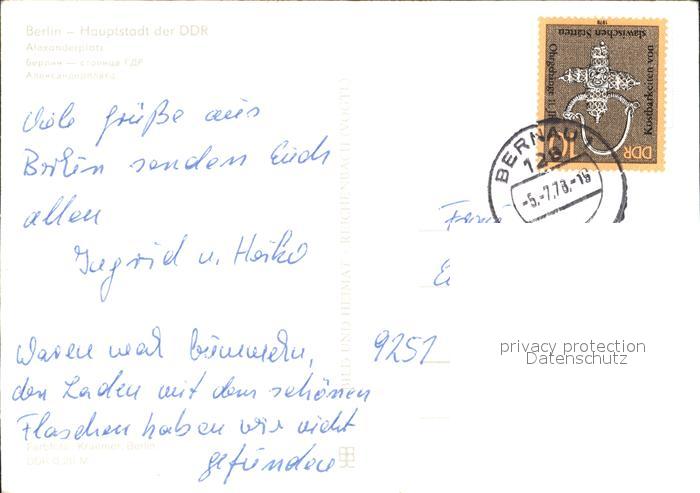 Berlin – Hauptstadt der DDR
Alexanderplatz
Берлин — столица ГДР
Александерплатц
Viele Grüße aus
Berlin senden Euch
allen
Ingrid u. Heiko
Waren mal bummeln,
den Laden mit dem schönen
Flaschen haben wir nicht
gefunden
Farbfoto: Kraemer, Berlin
BILD UND HEIMAT REICHENBACH (VOGTL)
Kostbarkeiten von
slawischen Stätten
1978
Ohrgehänge 11. Jh.
DDR
10
BERNAU
128
-5.-7.78.-19
9251
privacy protection
Datenschutz